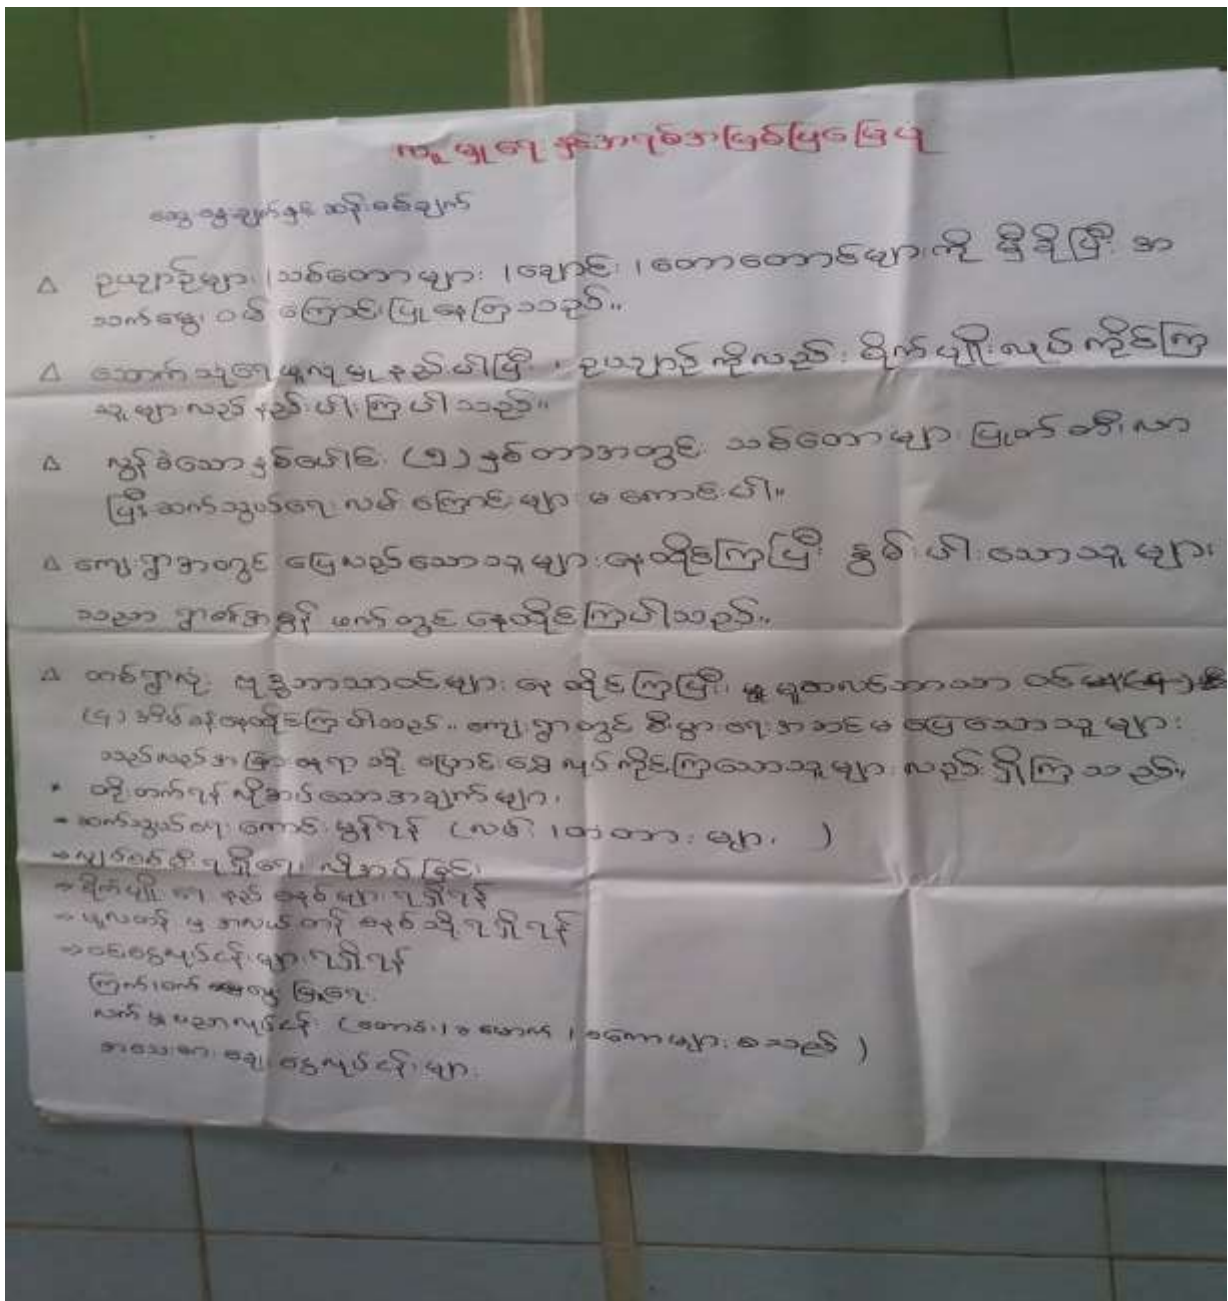 လူမှုရေးနှင့်အရင်းအမြစ်ပြမြေပုံ
ဆွေးနွေးချက်နှင့် ဆန်းစစ်ချက်
△ ဥယျာဉ်များ၊ သစ်တောများ၊ ချောင်း၊ တောတောင်များကို မှီခိုပြီး အ
သက်မွေးဝမ်းကြောင်းပြုနေကြသည်။
△ သောက်သုံးရေယူလုမှု နည်းပါးပြီး၊ ဥယျာဉ်ကိုလည်း စိုက်ပျိုးလုပ်ကိုင်ကြ
သူများလည်းနည်းပါးကြပါသည်။
△ လွန်ခဲ့သောနှစ်ပေါင်း (၅) နှစ်တာအတွင်း သစ်တောများ ပြုတ်တီးလာ
ပြီး ဆက်သွယ်ရေးလမ်းကြောင်းများ မကောင်းပါ။
△ ကျေးရွာအတွင် ပြေလည်သောသူများ နေထိုင်ကြပြီး နွမ်းပါးသောသူများ
သည် ရွာစွန် ဖက်တွင် နေထိုင်ကြပါသည်။
△ တစ်ရွာလုံး ဗုဒ္ဓဘာသာဝင်များ နေထိုင်ကြပြီး မူစလင်ဘာသာဝင်
(၄) အိမ်ခန့်နေထိုင်ကြပါသည်။ ကျေးရွာတွင် စီးပွားရေးအဆင်မပြေသောသူများ
သည်လည်း အခြားနေရာသို့ ပြောင်းရွှေ့လုပ်ကိုင်ကြသောသူများလည်းရှိကြသည်။
* တိုးတက်ရန်လိုအပ်သောအချက်များ
- ဆက်သွယ်ရေးကောင်းမွန်ရန် (လမ်း၊ တံတားများ)
⇒ လျှပ်စစ်မီးရရှိရေး လိုအပ်ခြင်း
⇒ စိုက်ပျိုးရေး နည်းစနစ်များရရှိရန်
⇒ မူလတန်းမှ အလယ်တန်းစနစ်သို့ရရှိရန်
⇒ ငွေလုပ်ငန်းများရရှိရန်
ကြက်၊ ဝက် မွေးမြူရေး
လက်မှုပညာလုပ်ငန်း (တောင်း၊ ၊ စကောများ စသည်)
အသေးစား ချေးငွေလုပ်ငန်းများ